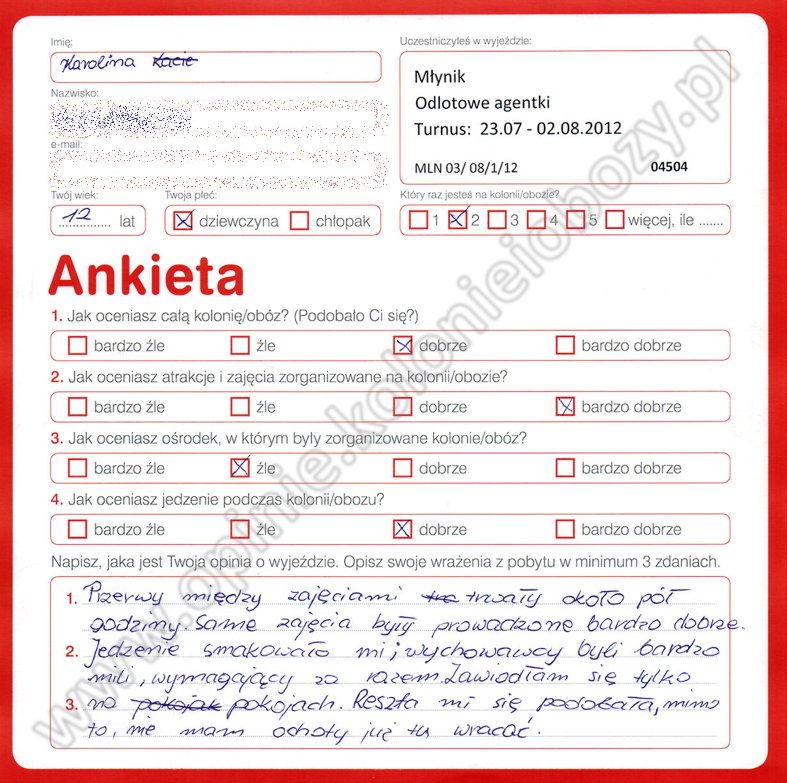 Imię:
Karolina Kacie
Nazwisko:
e-mail:
Twój wiek:
12 lat
Twoja płeć:
dziewczyna chłopak
Uczestniczyłeś w wyjeździe:
Młynik
Odlotowe agentki
Turnus: 23.07 - 02.08.2012
MLN 03/ 08/1/12 04504
Który raz jesteś na kolonii/obozie?
1 2 3 4 5 więcej, ile .......
Ankieta
1. Jak oceniasz całą kolonię/obóz? (Podobało Ci się?)
bardzo źle źle dobrze bardzo dobrze
2. Jak oceniasz atrakcje i zajęcia zorganizowane na kolonii/obozie?
bardzo źle źle dobrze bardzo dobrze
3. Jak oceniasz ośrodek, w którym były zorganizowane kolonie/obóz?
bardzo źle źle dobrze bardzo dobrze
4. Jak oceniasz jedzenie podczas kolonii/obozu?
bardzo źle źle dobrze bardzo dobrze
Napisz, jaka jest Twoja opinia o wyjeździe. Opisz swoje wrażenia z pobytu w minimum 3 zdaniach.
1. Przerwy między zajęciami trwały około pół
godziny. Same zajęcia były prowadzone bardzo dobrze.
2. Jedzenie smakowało mi, wychowawcy byli bardzo
mili, wymagający za razem. Zawiodłam się tylko
3. na pokojach. Reszta mi się podobała, mimo
to, nie mam ochoty już tu wracać.
www.opinie.kolonieiobozy.pl